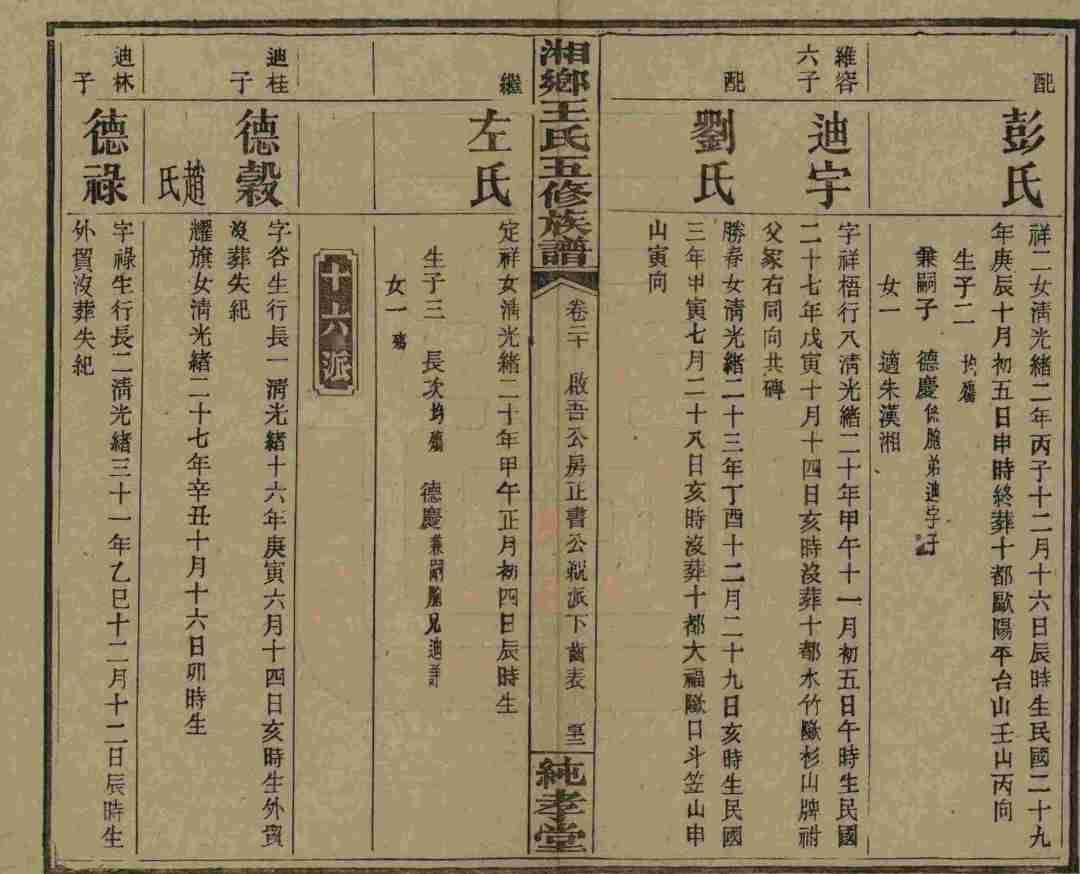 配
彭氏
祥二女淸光緒二年丙子十二月十六日辰時生民國二十九
年庚辰十月初五日申時終葬十都歐陽平台山壬山丙向
生子二　均殤
兼嗣子　德慶係胞弟迪字子
女一　適朱漢湘
維容
六子
迪宇
字祥梧行八淸光緒二十年甲午十一月初五日午時生民國
二十七年戊寅十月十四日亥時沒葬十都水竹㘰杉山牌祔
父冢右同向共碑
配
劉氏
勝春女淸光緒二十三年丁酉十二月二十九日亥時生民國
三年甲寅七月二十八日亥時沒葬十都大福㘰口斗笠山申
山寅向
湘鄉王氏五修族譜
卷二十　啟吾公房正書公親派下齒表
純孝堂
繼
左氏
定祥女淸光緒二十年甲午正月初四日辰時生
生子三　長次均殤　德慶兼嗣胞兄迪
女一殤
十六派
迪桂
子
德榖
字谷生行長一淸光緒十六年庚寅六月十四日亥時生外貿
沒葬失紀
趙氏
耀旗女淸光緒二十七年辛丑十月十六日卯時生
迪林
子
德祿
字祿生行長二淸光緒三十一年乙巳十二月十二日辰時生
外貿沒葬失紀